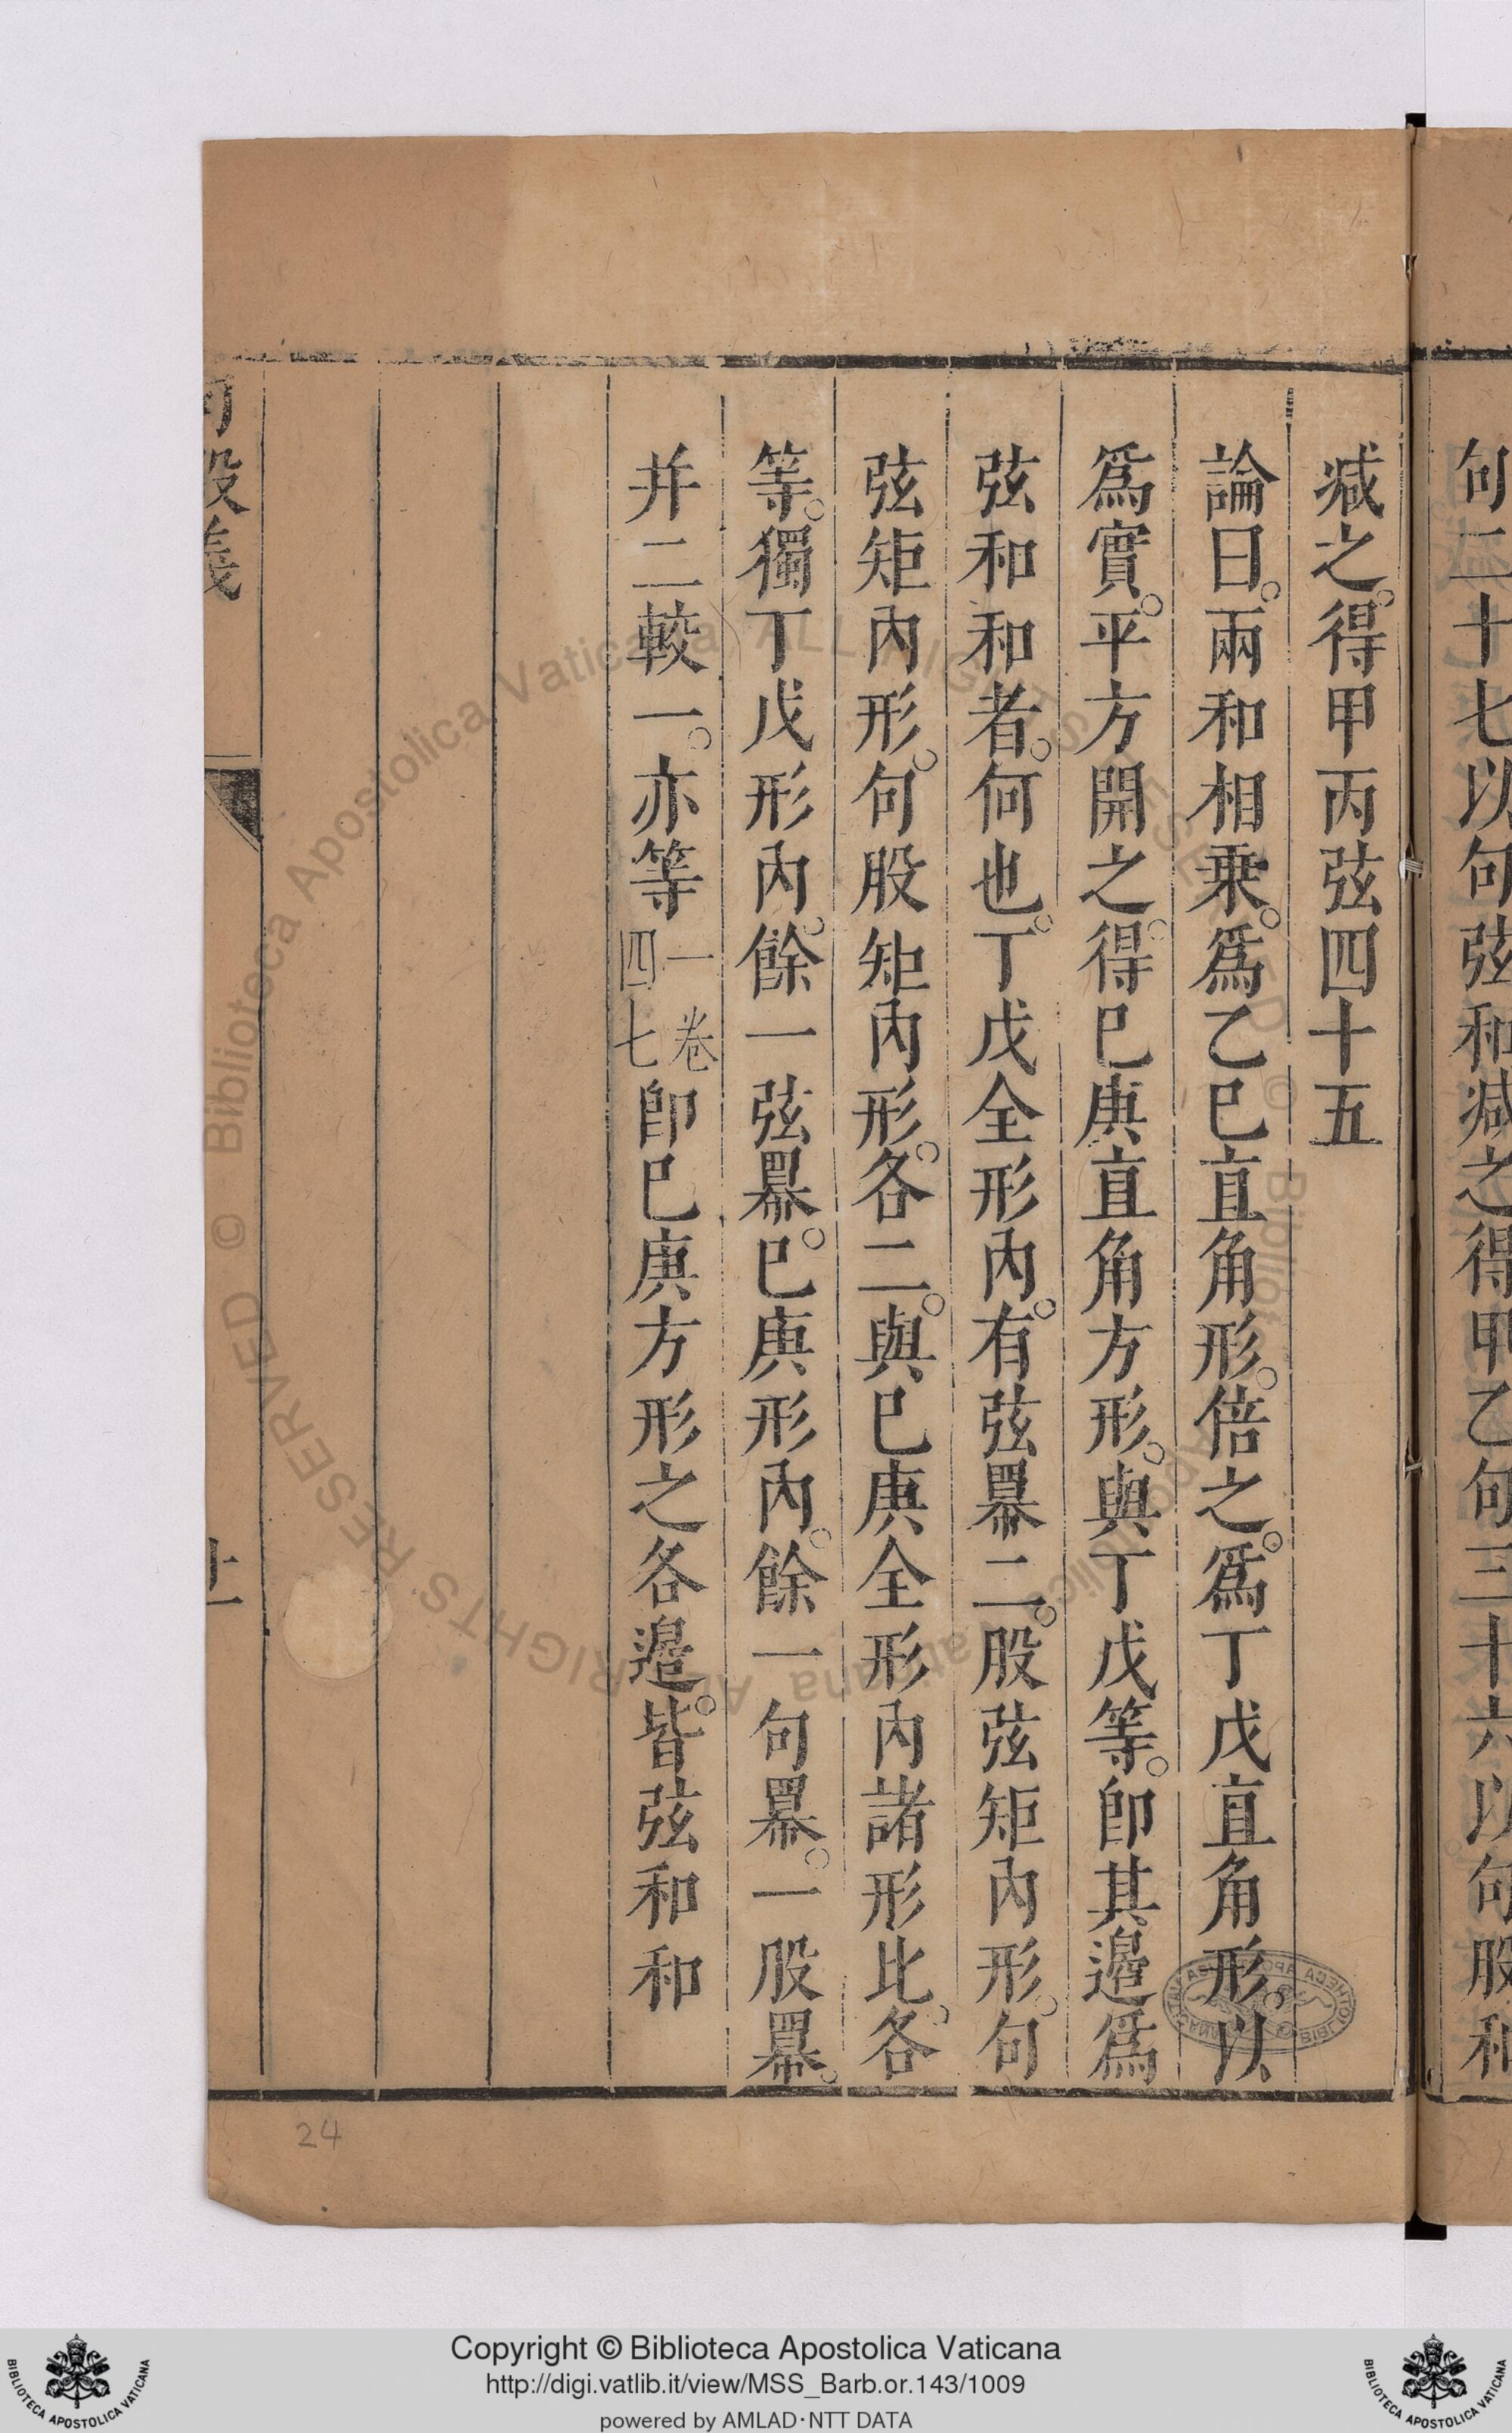 句二十七以句弦和减之得甲乙句三十六以句股和
减之。得甲丙弦四十五
論曰。兩和相乗。爲乙巳直角形。倍之。爲丁戊直角形。以
爲實。平方開之。得巳庚直角方形。與丁戊等。卽其邉爲
弦和和者。何也。丁戊全形內。有弦羃二。股弦矩內形。句
弦矩內形。句股矩內形。各二。與巳庚全形內諸形比。各
等。獨丁戊形內。餘一弦羃。巳庚形內。餘一句羃。一股羃。
并二較一。亦等
一卷
四七
卽巳庚方形之各邉。皆弦和和
句股義
24
Bibliotheca Apostolica Vaticana ALL RIGHTS RESERVED ©
Copyright © Biblioteca Apostolica Vaticana
http://digi.vatlib.it/view/MSS_Barb.or.143/1009
powered by AMLAD·NTT DATA
BIBLIOTECA APOSTOLICA VATICANA
BIBLIOTECA APOSTOLICA VATICANA